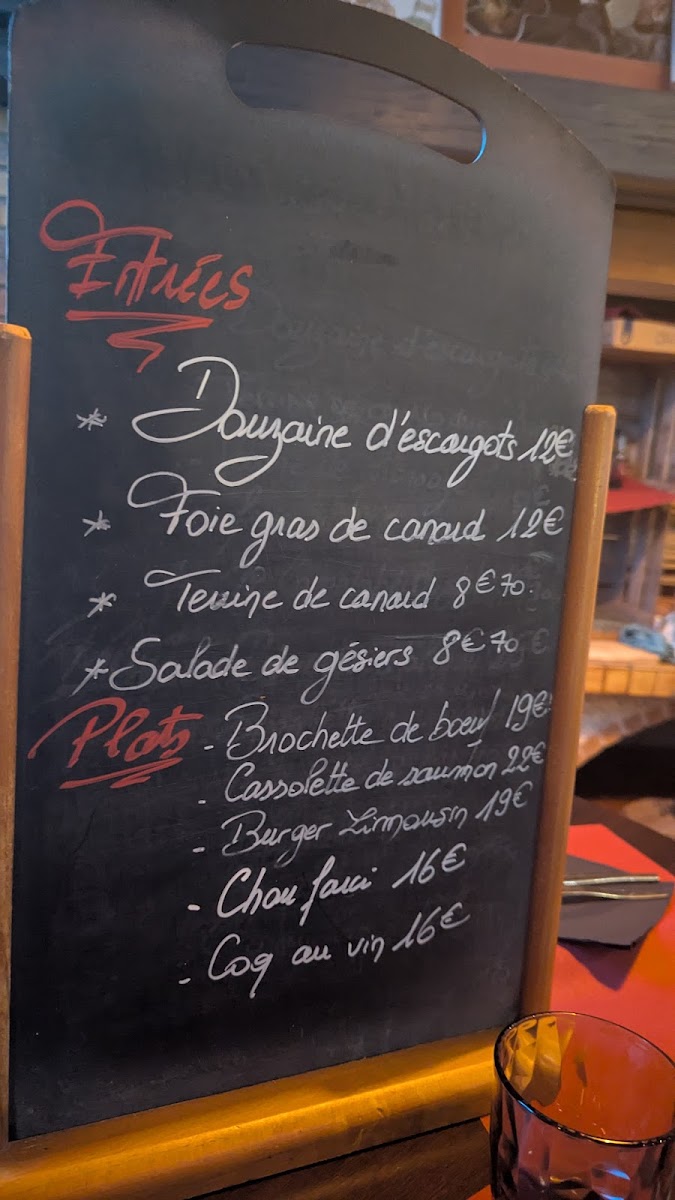 Entrées
* Douzaine d'escargots 12€
* Foie gras de canard 12€
* Terrine de canard 8€70
* Salade de gésiers 8€70
Plats - Brochette de boeuf 19€
- Cassolette de saumon 22€
- Burger Limousin 19€
- Chou farci 16€
- Coq au vin 16€